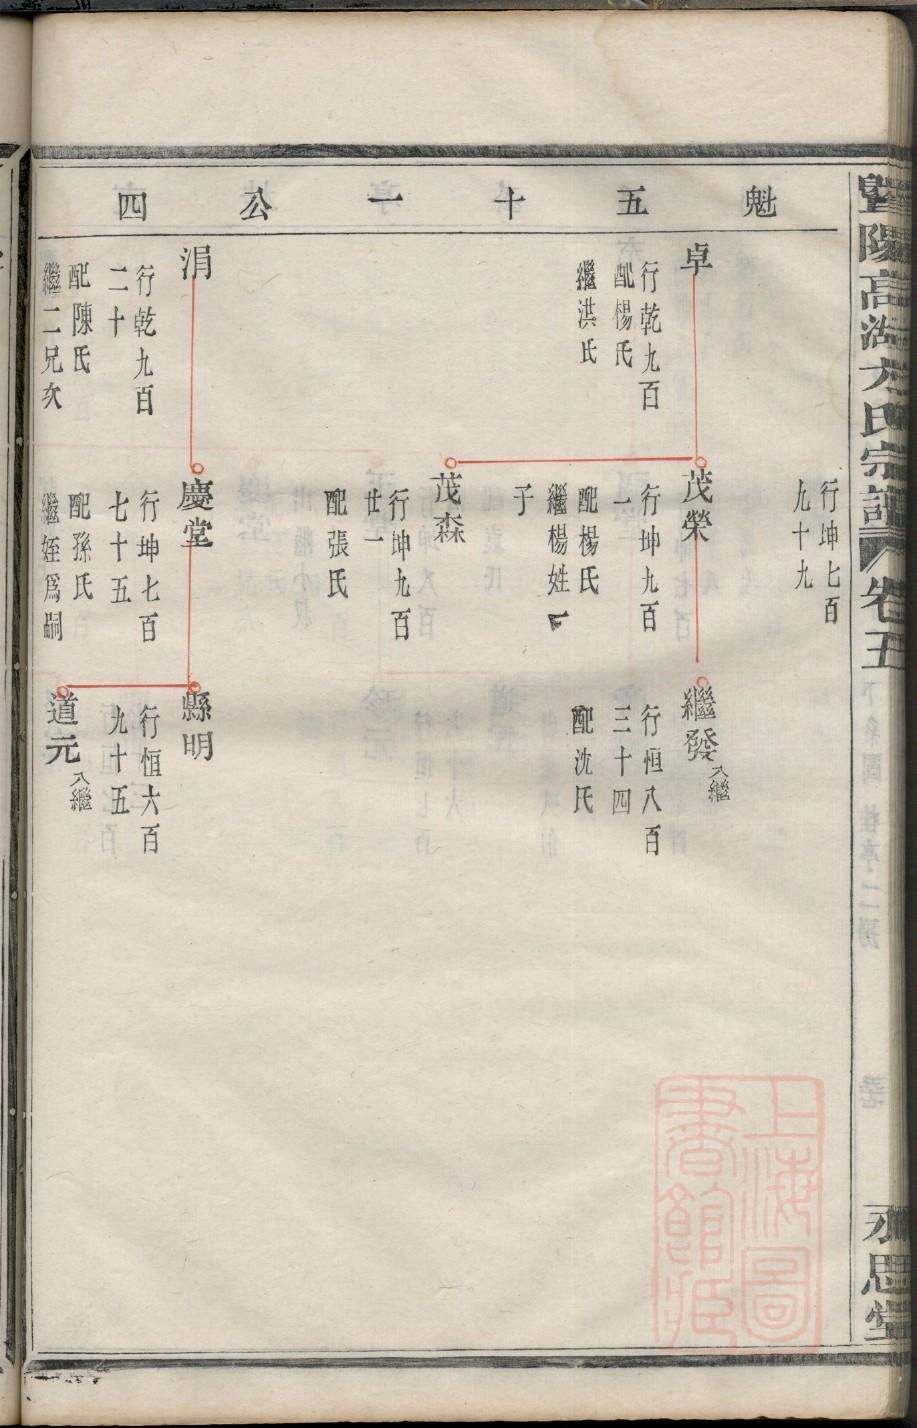 暨陽高湖方氏宗譜
卷五
永思堂
魁五十一公四
行坤七百
九十九
卓
行乾九百
配楊氏
繼洪氏
茂榮
行坤九百
一
配楊氏
繼楊姓一
子
繼發
入繼
行恒八百
三十四
配沈氏
茂森
行坤九百
廿一
配張氏
涓
行乾九百
二十
配陳氏
繼二兄次
慶堂
行坤七百
七十五
配孫氏
繼姪爲嗣
縣明
行恒六百
九十五
道元
入繼
上海圖
書館藏